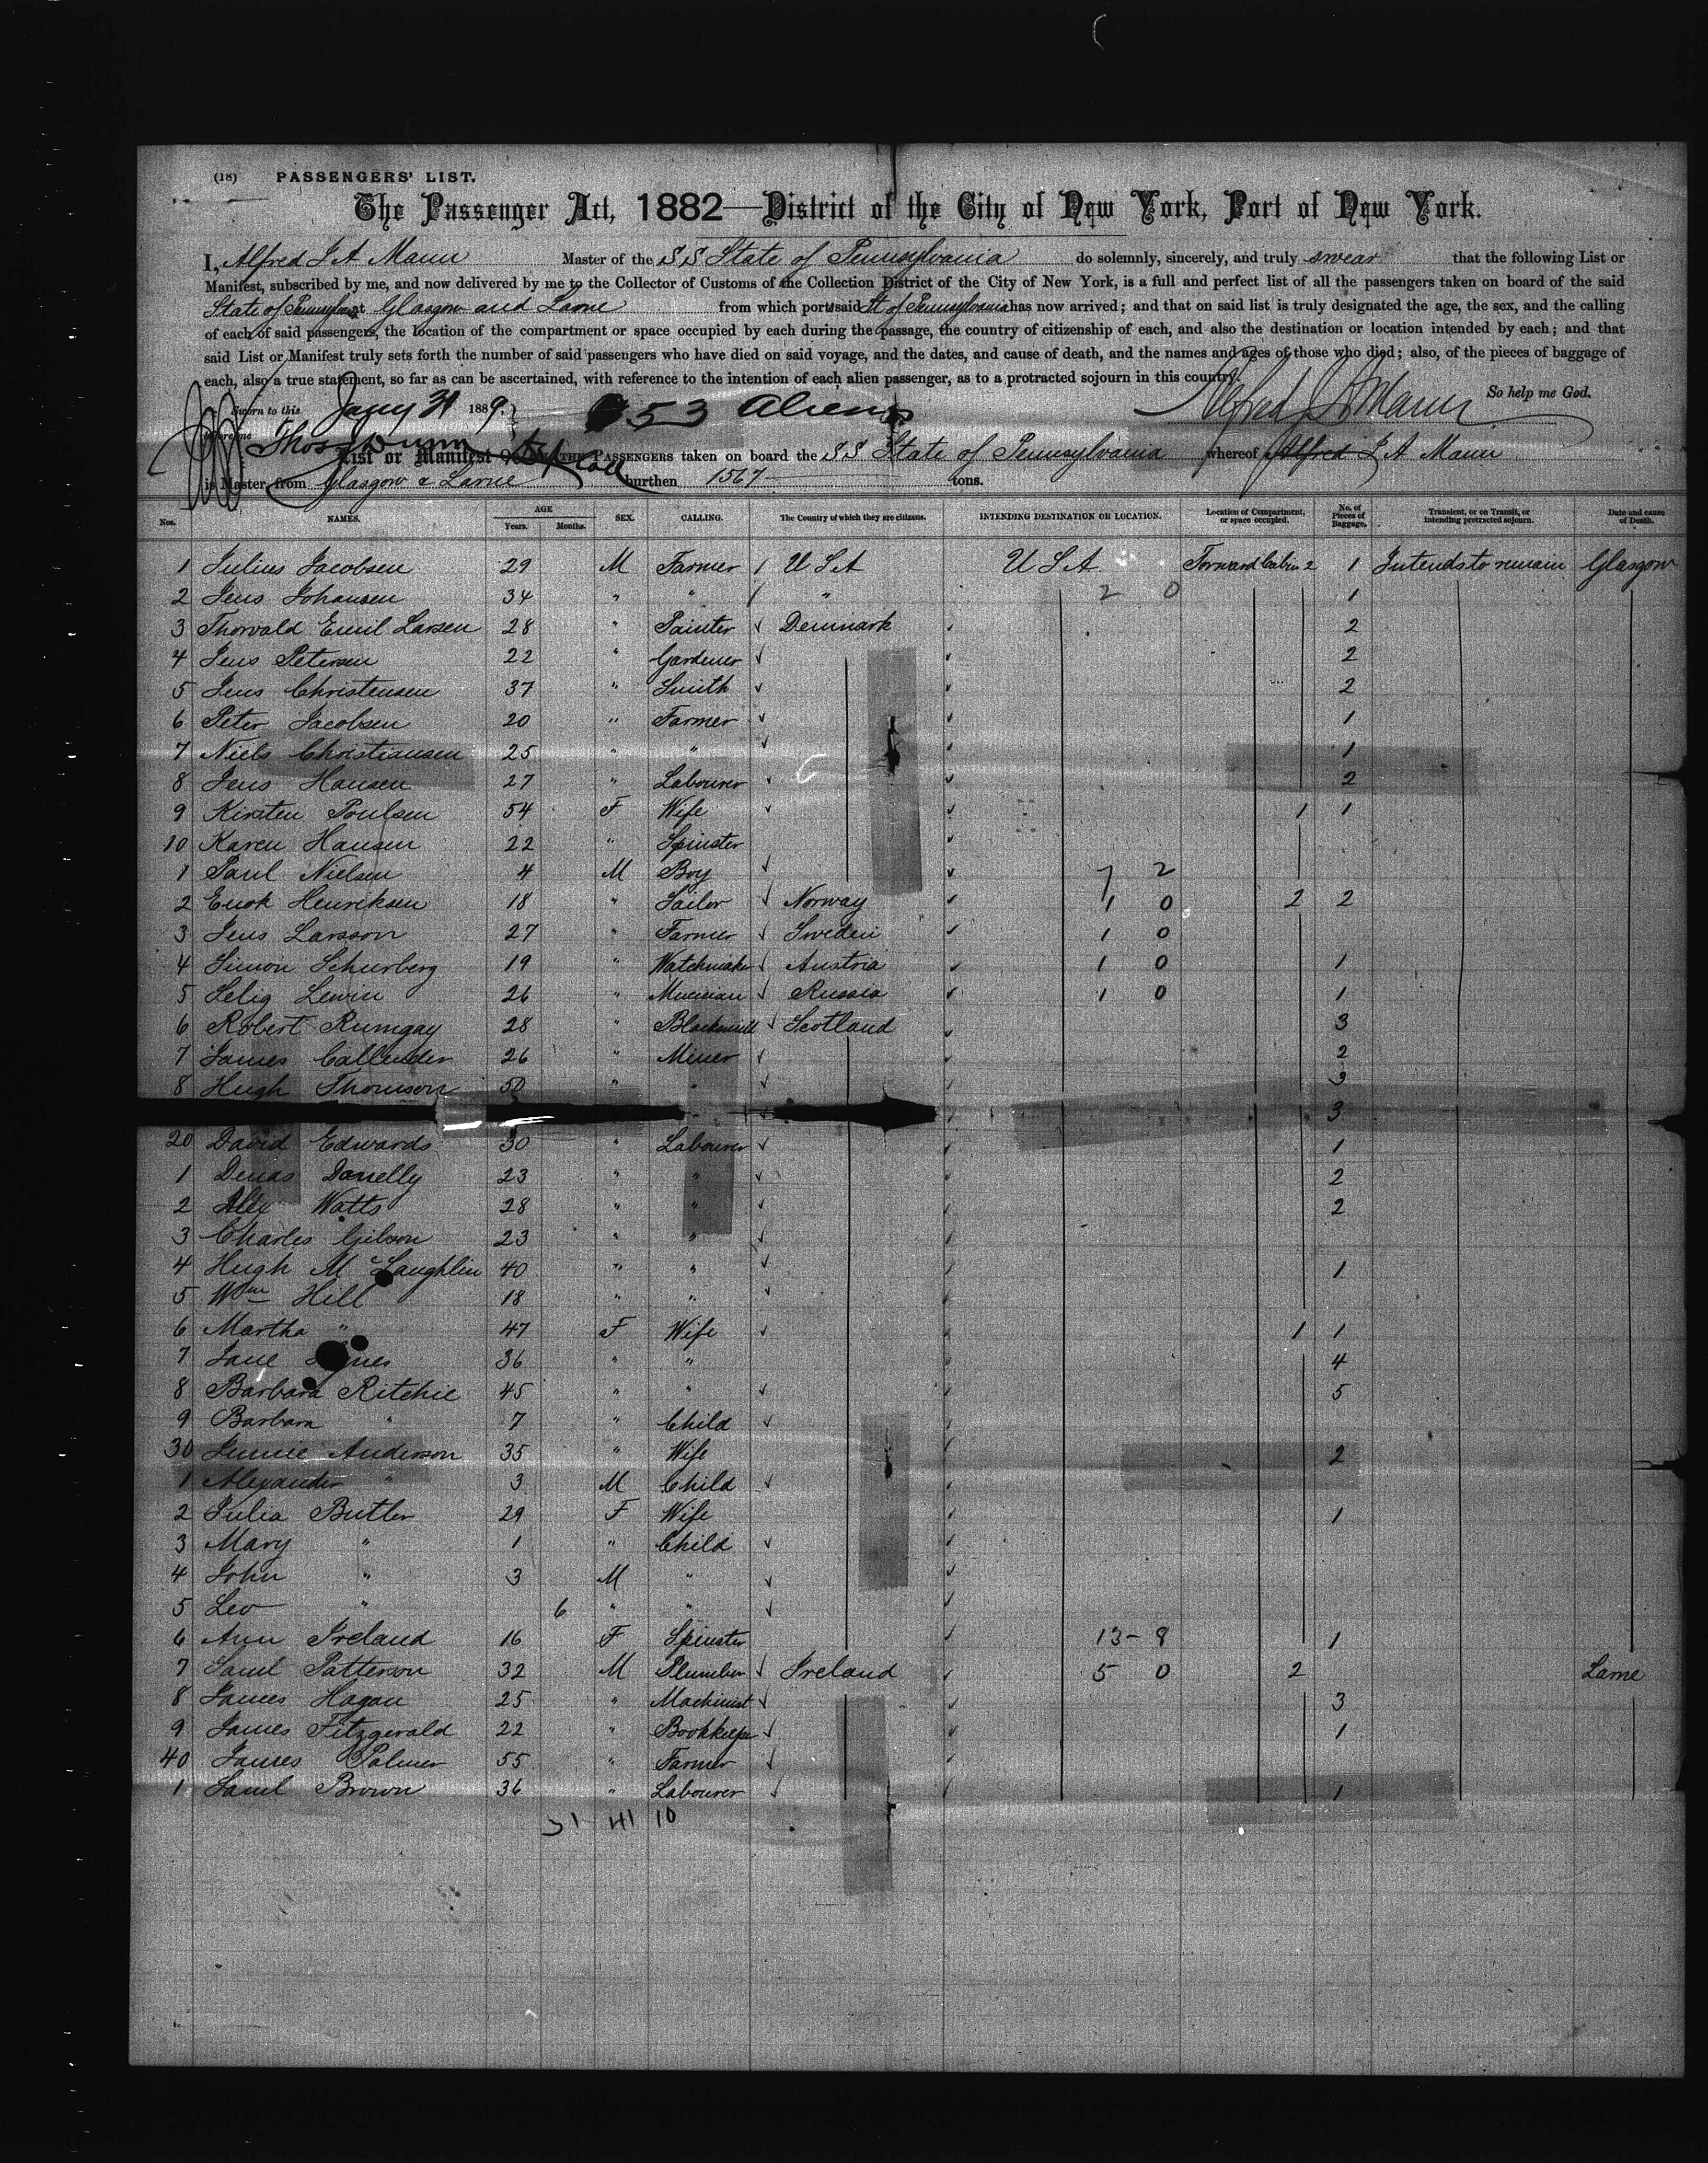 (18) PASSENGERS' LIST.
The Passenger Act, 1882—District of the City of New York, Port of New York.
I, Alfred J A Mann Master of the S S State of Pennsylvania do solemnly, sincerely, and truly swear that the following List or
Manifest, subscribed by me, and now delivered by me to the Collector of Customs of the Collection District of the City of New York, is a full and perfect list of all the passengers taken on board of the said
State of Pennsylvania at Glasgow and Larne from which port said St of Pennsylvania has now arrived; and that on said list is truly designated the age, the sex, and the calling
of each of said passengers, the location of the compartment or space occupied by each during the passage, the country of citizenship of each, and also the destination or location intended by each; and that
said List or Manifest truly sets forth the number of said passengers who have died on said voyage, and the dates, and cause of death, and the names and ages of those who died; also, of the pieces of baggage of
each, also a true statement, so far as can be ascertained, with reference to the intention of each alien passenger, as to a protracted sojourn in this country.
So help me God.
Sworn to this Jany 31 1889. 53 Aliens Alfred J A Mann
before me Thos Dunn
List or Manifest OF ALL THE PASSENGERS taken on board the S S State of Pennsylvania whereof Alfred J A Mann
is Master, from Glasgow & Larne burthen 1567 tons.
Nos. NAMES. AGE Years. Months. SEX. CALLING. The Country of which they are citizens. INTENDING DESTINATION OR LOCATION. Location of Compartment, or space occupied. No. of Pieces of Baggage. Transient, or on Transit, or intending protracted sojourn. Date and cause of Death.
1 Julius Jacobsen 29 M Farmer / U S A U S A Forward Cabin 2 1 Intends to remain Glasgow
2 Jens Johansen 34 " " / " 2 0 1
3 Thorvald Emil Larsen 28 " Painter ✓ Denmark 2
4 Jens Petersen 22 " Gardener ✓ 2
5 Jens Christensen 37 " Smith ✓ 2
6 Peter Jacobsen 20 " Farmer ✓ 1
7 Niels Christiansen 25 " " ✓ 1
8 Jens Hansen 27 " Labourer 2
9 Kirsten Poulsen 54 F Wife ✓ 1 1
10 Karen Hansen 22 " Spinster
1 Paul Nielsen 4 M Boy ✓ 7 2
2 Enok Henriksen 18 " Sailor ✓ Norway 1 0 2 2
3 Jens Larsson 27 " Farmer ✓ Sweden 1 0
4 Simon Schurberg 19 " Watchmaker ✓ Austria 1 0 1
5 Selig Lewin 26 " Mucician ✓ Russia 1 0 1
6 Robert Rumgay 28 " Blacksmith ✓ Scotland 3
7 James Callender 26 " Miner ✓ 2
8 Hugh Thomson 50 " " ✓ 3
3
20 David Edwards 30 " Labourer ✓ 1
1 Donelly 23 " " ✓ 2
2 Alex Watts 28 " " ✓ 2
3 Charles Gibson 23 " " ✓
4 Hugh Mc Laughlin 40 " " ✓ 1
5 Wm Hill 18 " " ✓
6 Martha " 47 F Wife ✓ 1 1
7 Jane 36 " " 4
8 Barbara Ritchie 45 " " ✓ 5
9 Barbara " 7 " Child ✓
30 Anderson 35 " Wife 2
1 Alexander " 3 M Child ✓
2 Julia Butler 29 F Wife 1
3 Mary " 1 " Child ✓
4 John " 3 M " ✓
5 Leo " 6 " " ✓
6 Ann Ireland 16 F Spinster 13-8 1
7 Saml Patterson 32 M Plumber ✓ Ireland 5 0 2 Larne
8 James Hagan 25 " Machinist ✓ 3
9 James Fitzgerald 22 " Bookkeeper ✓ 1
40 James Palmer 55 " Farmer ✓
1 Saml Brown 36 " Labourer ✓ 1
31 41 10